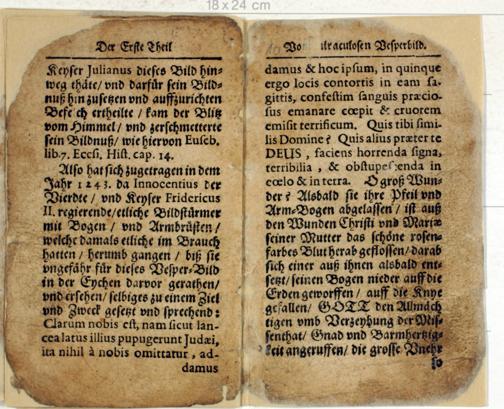 18 x 24 cm
Der Erste Theil
Keyser Julianus dieses Bild hin-
weg thäte/ und darfür sein Bild-
nuß hin zusetzen vnd auffzurichten
Befe ch ertheilte / kam der Blitz
vom Himmel/ vnd zerschmetterte
sein Bildnuß/ wie hiervon Euseb.
lib. 7. Eccsi. Hist. cap. 14.
Also hat sich zugetragen in dem
Jahr 1243. da Innocentius der
Vierdte / vnd Keyser Fridericus
II. regierende/ etliche Bildstürmer
mit Bogen / vnd Armbrüsten /
welche damals etliche im Brauch
hatten / herumb gangen / biß sie
vngefähr für dieses Vesper-Bild
in der Eychen darvor gerathen/
vnd ersehen/ selbiges zu einem Ziel
vnd Zweck gesetzt vnd sprechend:
Clarum nobis est, nam sicut lan-
cea latus illius pupugerunt Judæi,
ita nihil à nobis omittatur, ad-
damus
Vo raculosen Vesperbild.
damus & hoc ipsum, in quinque
ergo locis contortis in eam sa-
gittis, confestim sanguis præcio-
sus emanare cœpit & cruorem
emisit terrificum. Quis tibi simi-
lis Domine? Quis alius præter te
DEUS , faciens horrenda signa,
terribilia , & obstupescenda in
cœlo & in terra. O groß Wun-
der? Alsbald sie ihre Pfeil vnd
Arm-Bogen abgelassen/ ist auß
den Wunden Christi vnd Mariæ
seiner Mutter das schöne rosen-
farbes Blut herab geflossen/ darab
sich einer auß ihnen alsbald ent-
setzt/ seinen Bogen nieder auff die
Erden geworffen / auff die Knye
gefallen/ GOTT den Allmäch
tigen vmb Verzeyhung der Mis-
senthat/ Gnad vnd Barmhertzig-
keit angeruffen/ die grosse Vnehr
so